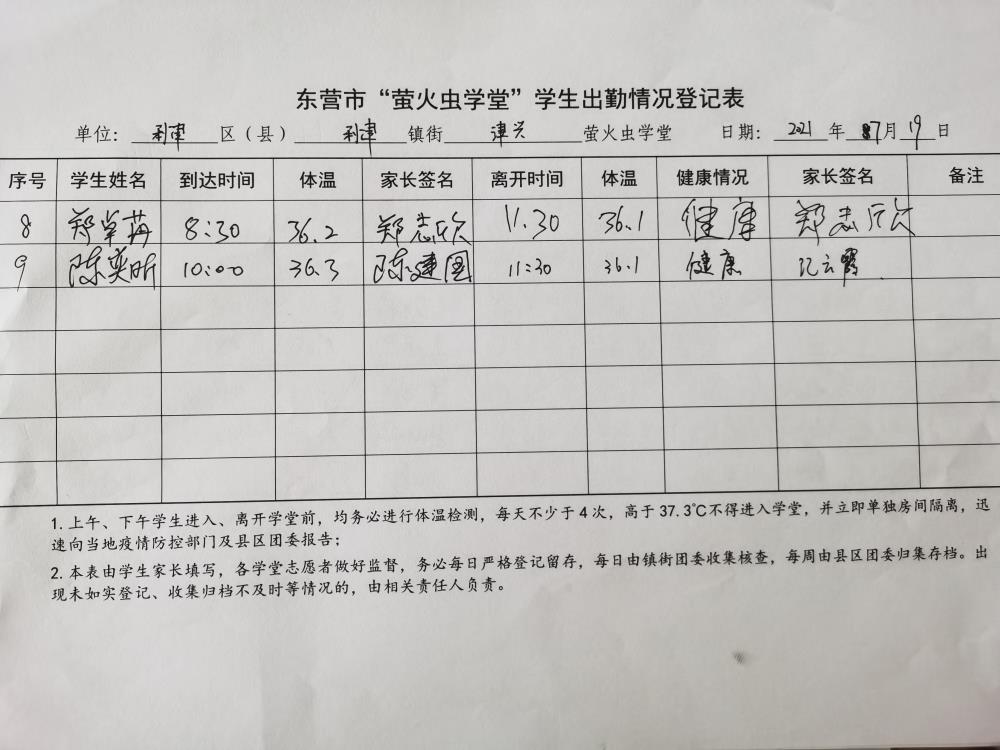 东营市“萤火虫学堂”学生出勤情况登记表
单位：利津区（县）利津镇街津兴萤火虫学堂 日期：2021年7月19日
序号 学生姓名 到达时间 体温 家长签名 离开时间 体温 健康情况 家长签名 备注
8 郑 8:30 36.2 郑志欣 11.30 36.1 健康 郑志欣
9 陈奕昕 10:00 36.3 陈建国 11:30 36.1 健康 云霞
1. 上午、下午学生进入、离开学堂前，均务必进行体温检测，每天不少于4次，高于37.3℃不得进入学堂，并立即单独房间隔离，迅
速向当地疫情防控部门及县区团委报告；
2. 本表由学生家长填写，各学堂志愿者做好监督，务必每日严格登记留存，每日由镇街团委收集核查，每周由县区团委归集存档。出
现未如实登记、收集归档不及时等情况的，由相关责任人负责。